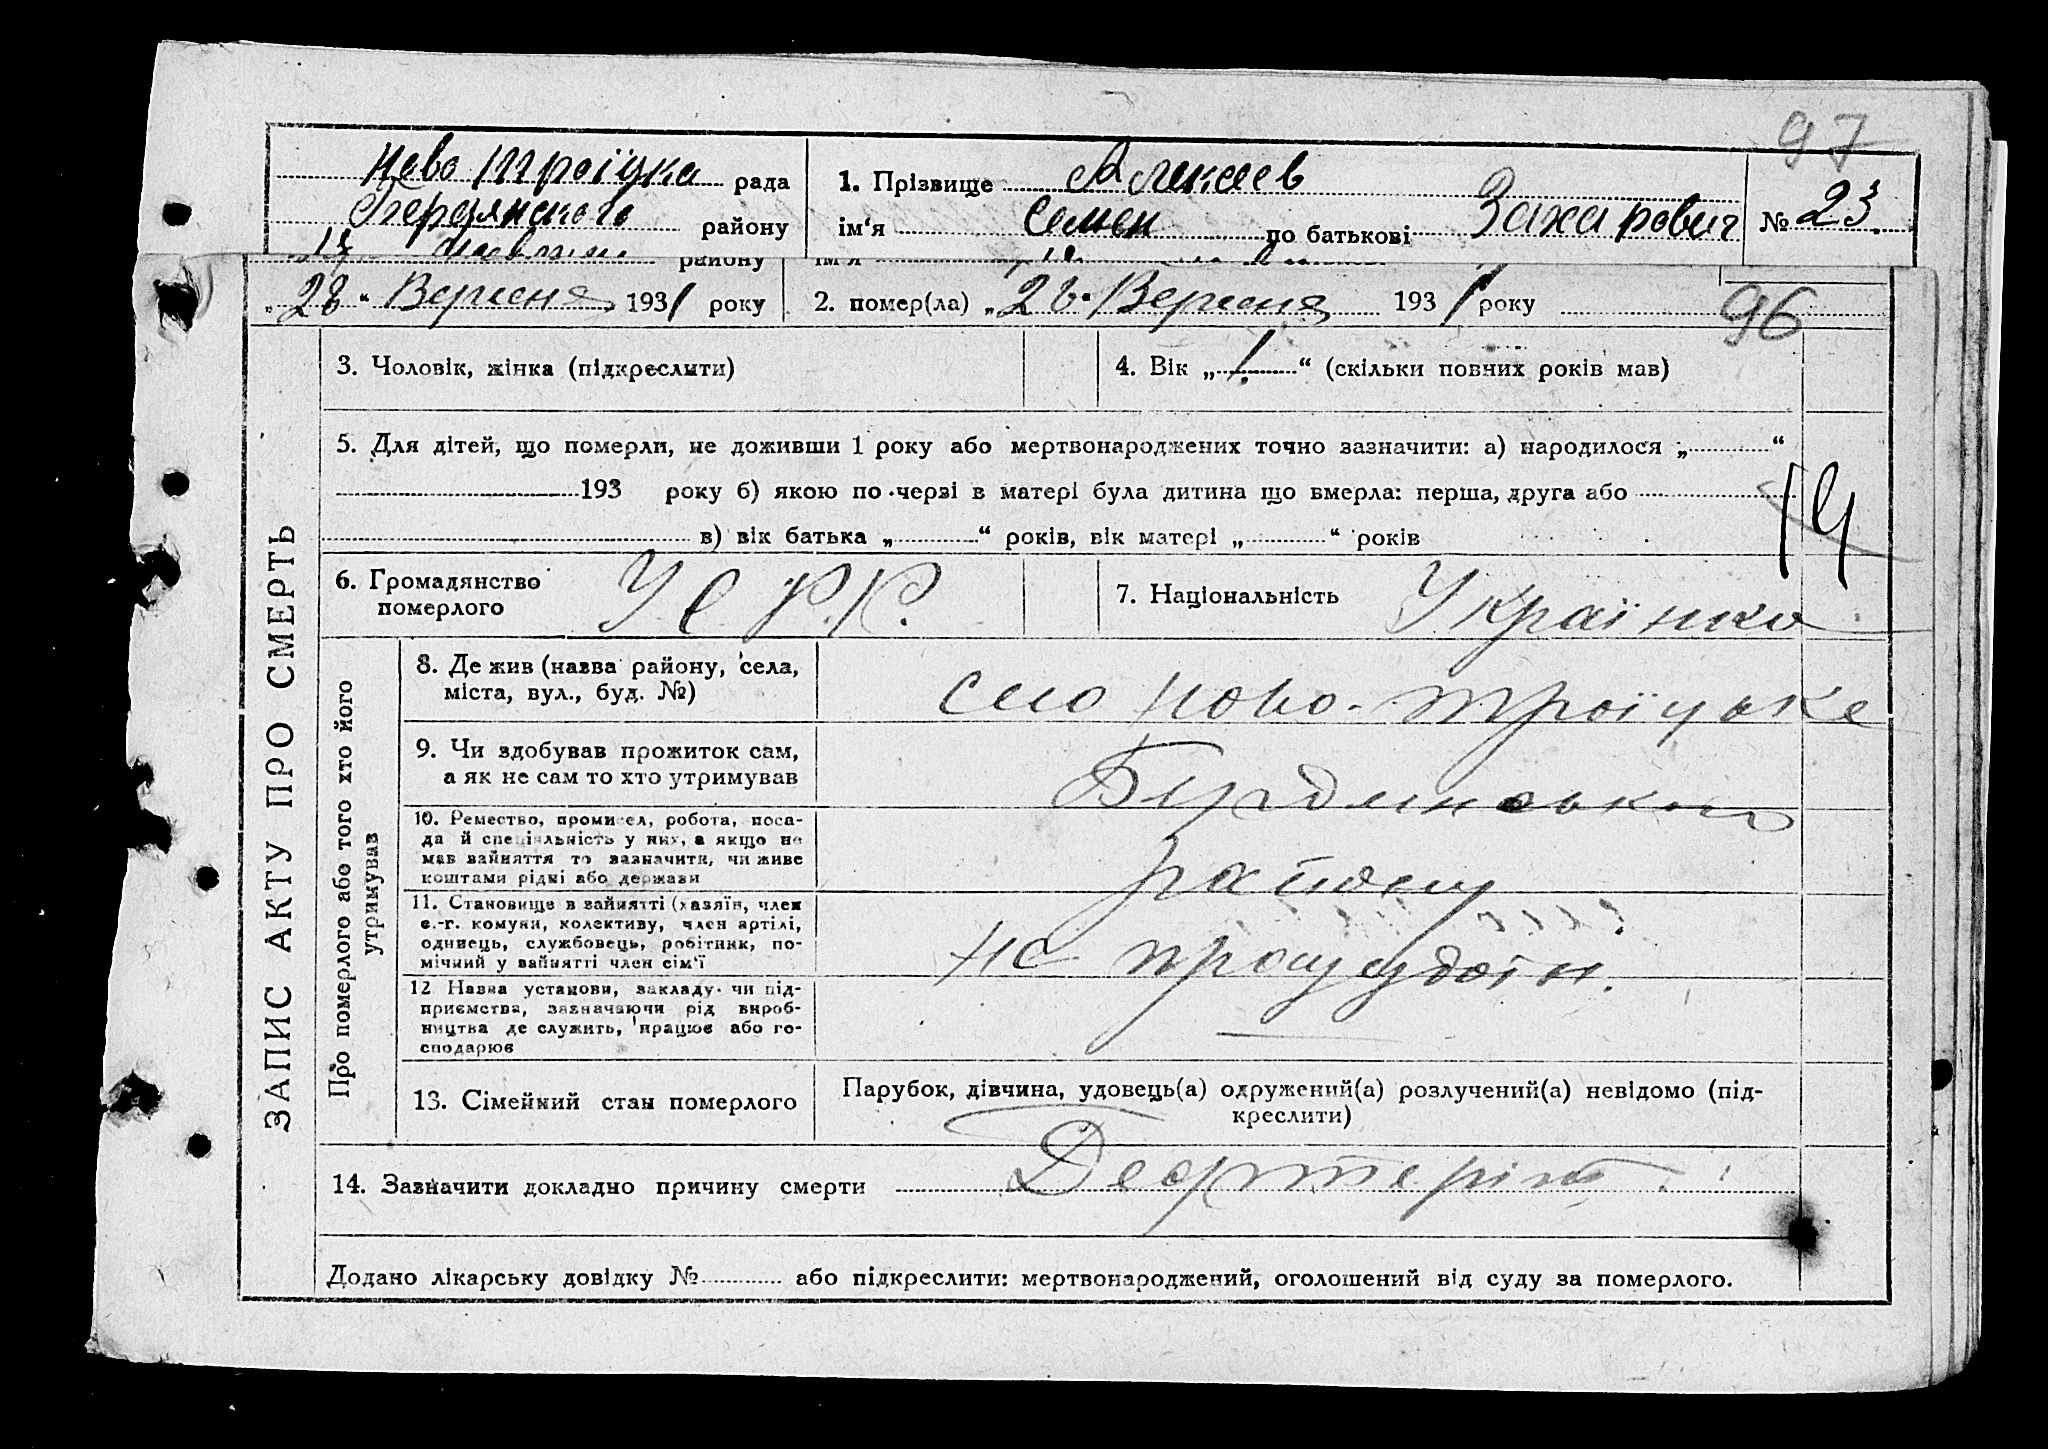 97
Ново Троїцка рада
Бердянского району
1. Прізвище Алексеев
ім‘я Семен по батькові Захарович
№ 23.
району
ім‘я
„28“ Вересня 1931 року
2. помер(ла) „26“ Вересня 1931 року
96
3. Чоловік, жінка (підкреслити)
4. Вік „1“ (скільки повних років мав)
5. Для дітей, що померли, не доживши 1 року або мертвонароджених точно зазначити: а) народилося „ “
193 року б) якою по черзі в матері була дитина що вмерла: перша, друга або
в) вік батька „ “ років, вік матері „ “ років
14
6. Громадянство
померлого
У.С.Р.Р.
7. Національність Українка
ЗАПИС АКТУ ПРО СМЕРТЬ
Про померлого або того хто його
утримував
8. Де жив (назва району, села,
міста, вул., буд. №)
село Ново-Троїцьке
9. Чи здобував прожиток сам,
а як не сам то хто утримував
Бердянського
10. Ремество, промисел, робота, поса-
да й спеціяльність у них, а якщо не
мав зайняття то зазначити, чи живе
коштами рідні або держави
району
11. Становище в зайнятті (хазяїн, член
с.-г. комуни, колективу, член артілі,
одинець, службовець, робітник, по-
мічний у зайнятті член сім‘ї
не працездатн.
12 Назва установи, закладу чи під-
приємства, зазначаючи рід вироб-
ництва де служить, працює або го-
сподарює
13. Сімейний стан померлого
Парубок, дівчина, удовець(а) одружений(а) розлучений(а) невідомо (під-
креслити)
14. Зазначити докладно причину смерти
Додано лікарську довідку № або підкреслити: мертвонароджений, оголошений від суду за померлого.